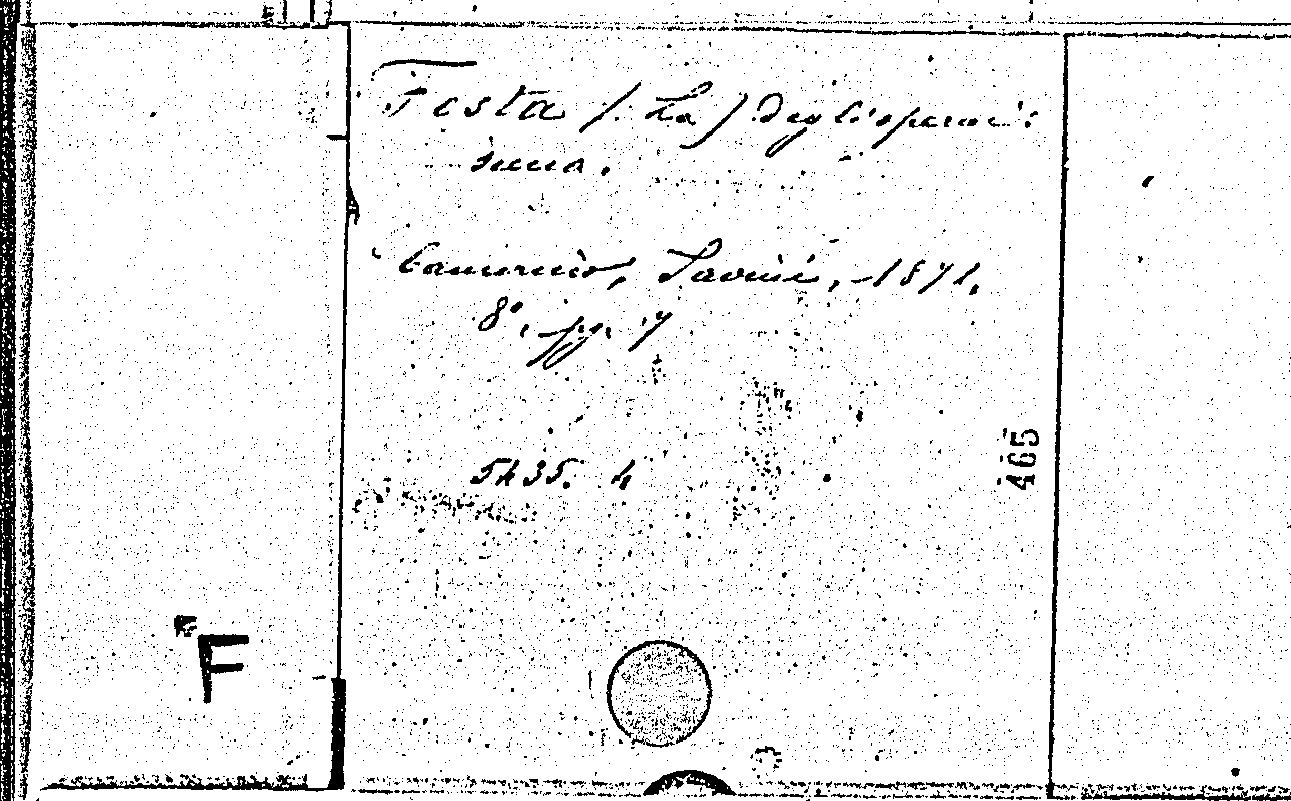 Festa (La) degli operai:
Camerino, Savini, 1871,
8°. pp. 7
5435. 4
465
F